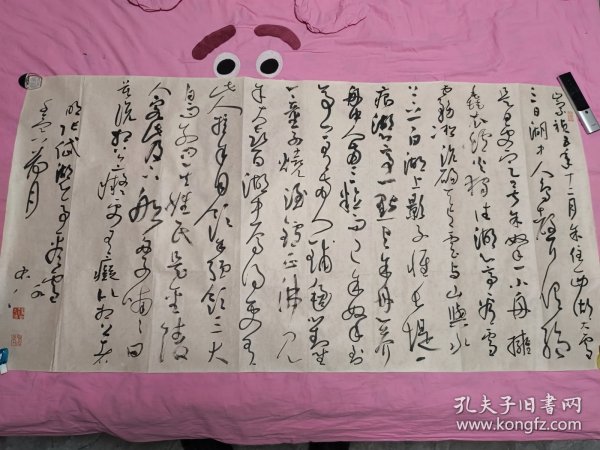 崇祯五年十二月余住西湖大雪
三日湖中人鸟声俱绝
是日更定矣余拏一小舟拥
毳衣炉火独往湖心亭看雪
雾凇沆砀天与云与山与水
上下一白湖上影子惟长堤一
痕湖心亭一点与余舟一芥
舟中人两三粒而已到
亭上有两人铺毡对坐
一童子烧酒炉正沸见
余大喜曰湖中焉得更有
此人拉余同饮余强饮三大
白而别问其姓氏是金陵
人客此及下船舟子喃喃曰
莫说相公痴更有痴似相公者
明张岱湖心亭看雪
月
孔夫子旧书网
www.kongfz.com